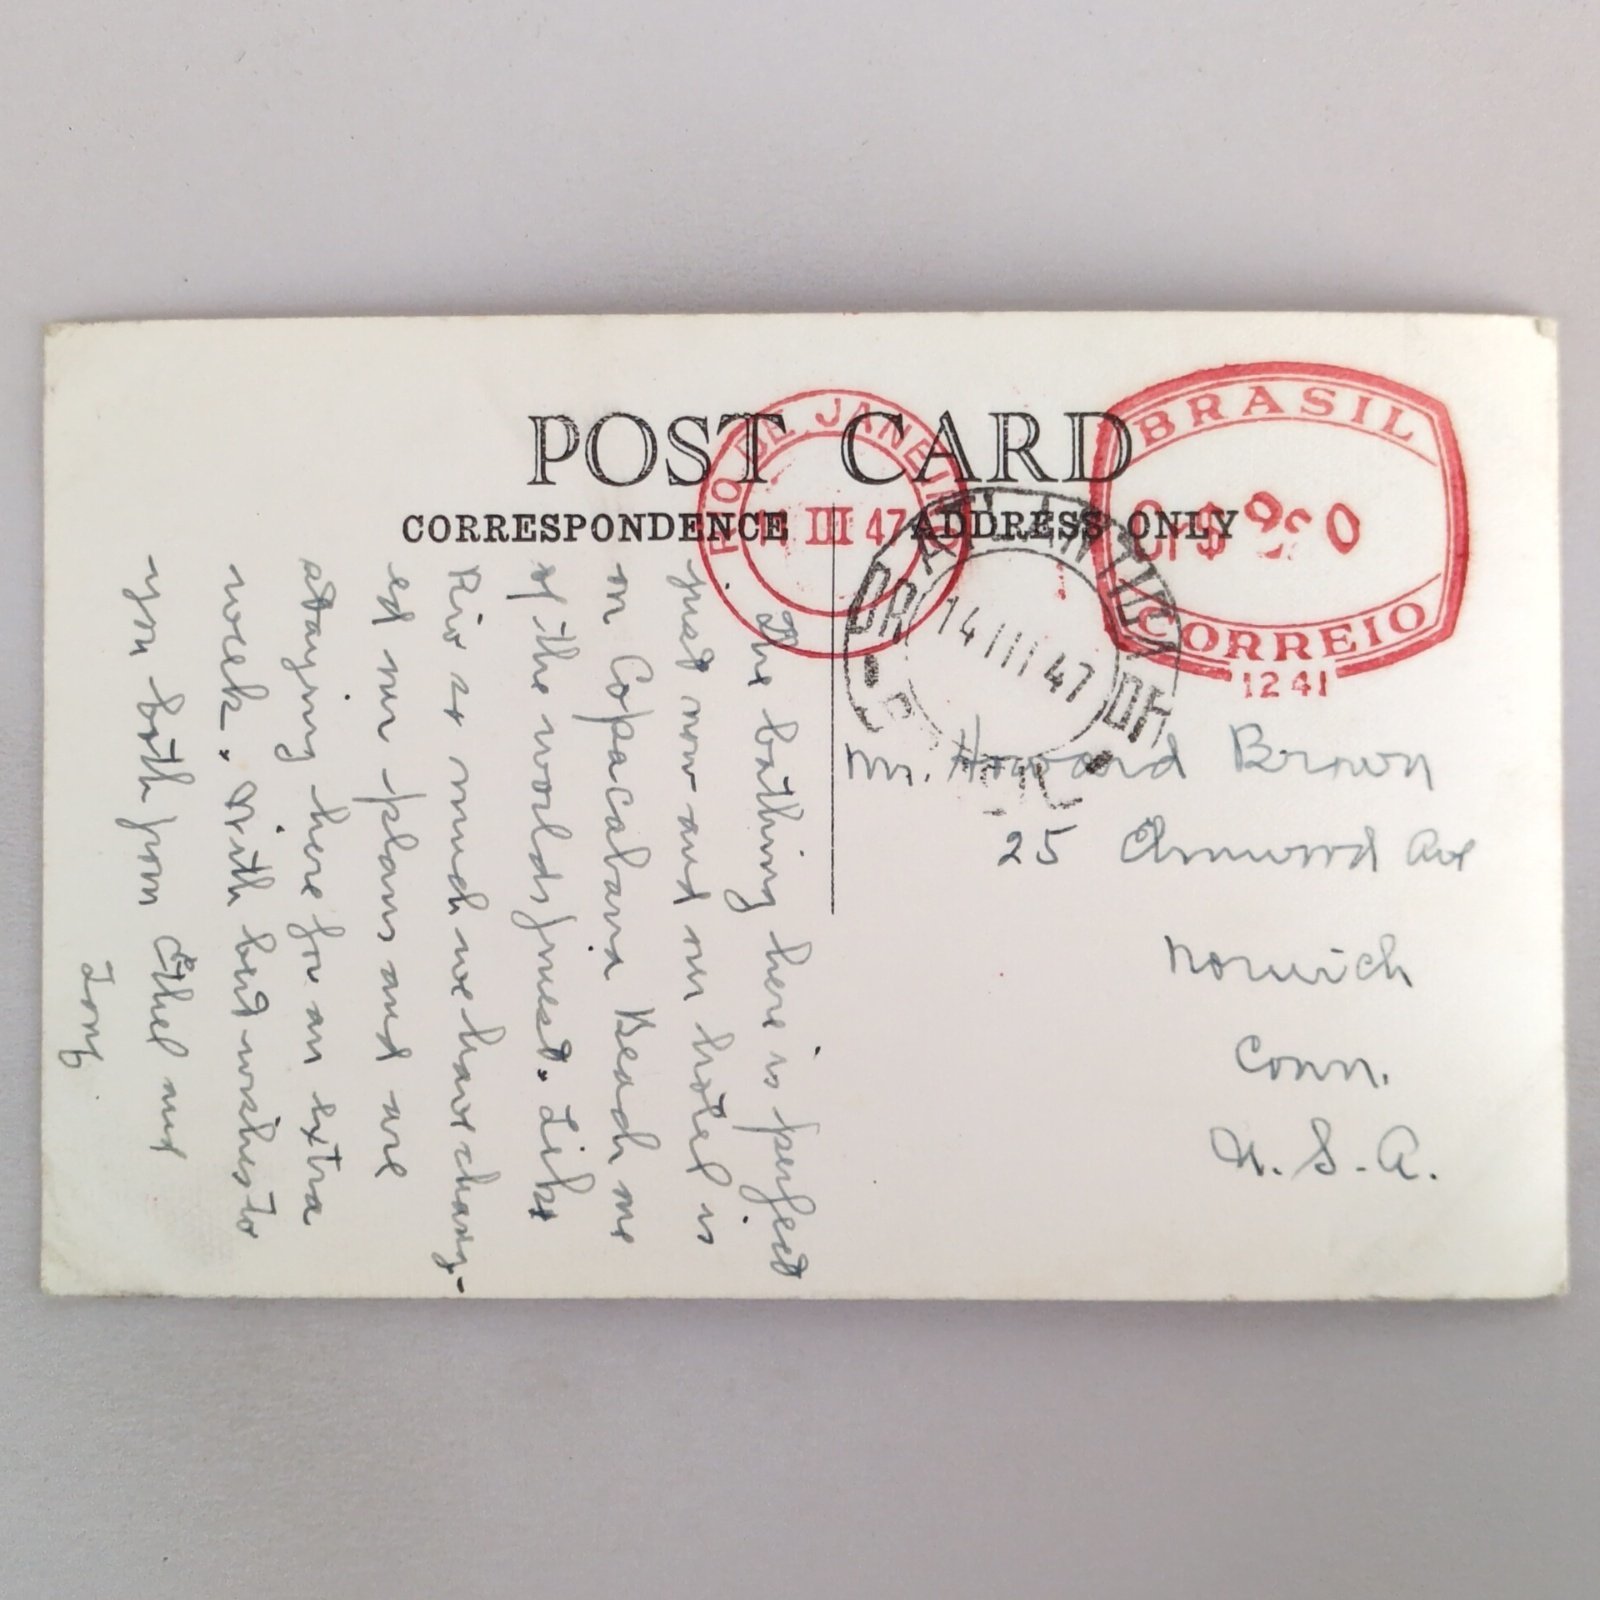 POST CARD
CORRESPONDENCE
ADDRESS ONLY
RIO DE JANEIRO
III 47
BRASIL
CORREIO
1241
14 III 47
The bathing here is perfect
just now and our hotel is
on Copacabana Beach one
of the worlds finest. Like
Rio so much we have chang-
ed our plans and are
staying here for an extra
week. With best wishes to
you both from Ethel and
Tony.
Mr. Howard Brown
25 Elmwood Ave
Norwich
Conn.
U.S.A.